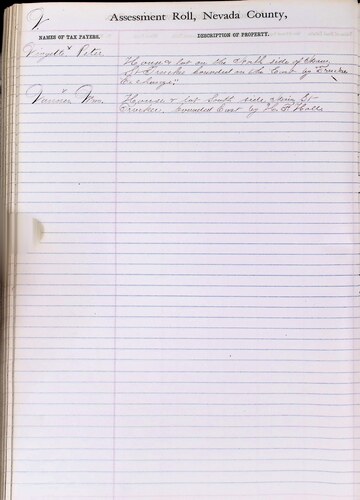 V
Assessment Roll, Nevada County,
NAMES OF TAX PAYERS.
DESCRIPTION OF PROPERTY.
Peter
House & lot on the South side of
St Truckee bounded on the East by Truckee
Exchange"
Wm
House & lot South side Spring St
Truckee, bounded East by